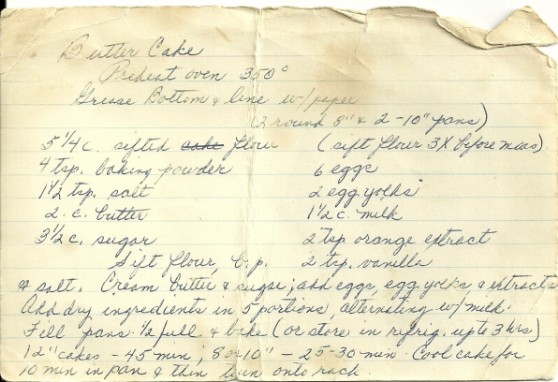 Butter Cake
Preheat oven 350°
Grease Bottom & line w/paper
(2 round 8" & 2-10" pans)
5 1/4 c. sifted cake flour (sift flour 3X before meas)
4 tsp. baking powder 6 eggs
1 1/2 tsp. salt 2 egg yolks
2 c. butter 1 1/2 c. milk
3 1/2 c. sugar 2 tsp orange extract
Sift flour, b.p. 2 tsp. vanilla
& salt. Cream butter & sugar; add eggs, egg yolks, & extracts
Add dry ingredients in 5 portions, alternating w/milk.
Fill pans 1/2 full & bake (or store in refrig. up to 3 hrs)
12" cakes - 45 min; 8 or 10" - 25-30 min. Cool cake for
10 min in pan & then turn onto rack.